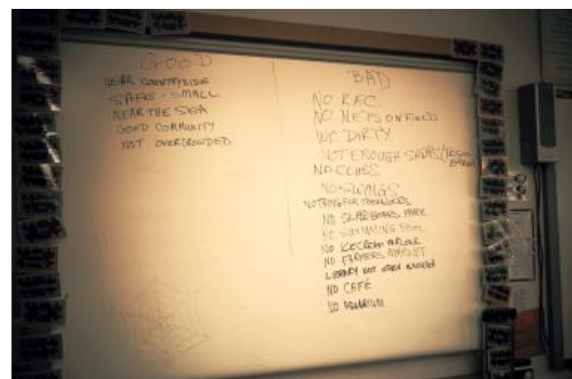 GOOD
NEAR COUNTRYSIDE
SAFE - SMALL
NEAR THE SEA
GOOD COMMUNITY
NOT OVERCROWDED
BAD
NO KFC
NO NETS ON FIELD
WC DIRTY
NOT ENOUGH SHOPS
NO CLUBS
NO SWINGS
NOTHING FOR TEENAGERS
NO SKATEBOARD PARK
NO SWIMMING POOL
NO ICECREAM PARLOUR
NO FARMERS MARKET
LIBRARY NOT OPEN ENOUGH
NO CAFÉ
NO AQUARIUM